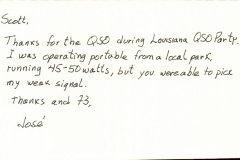 Scott,
Thanks for the QSO during Louisiana QSO Party.
I was operating portable from a local park,
running 45-50 watts, but you were able to pick
my weak signal.
Thanks and 73,
José